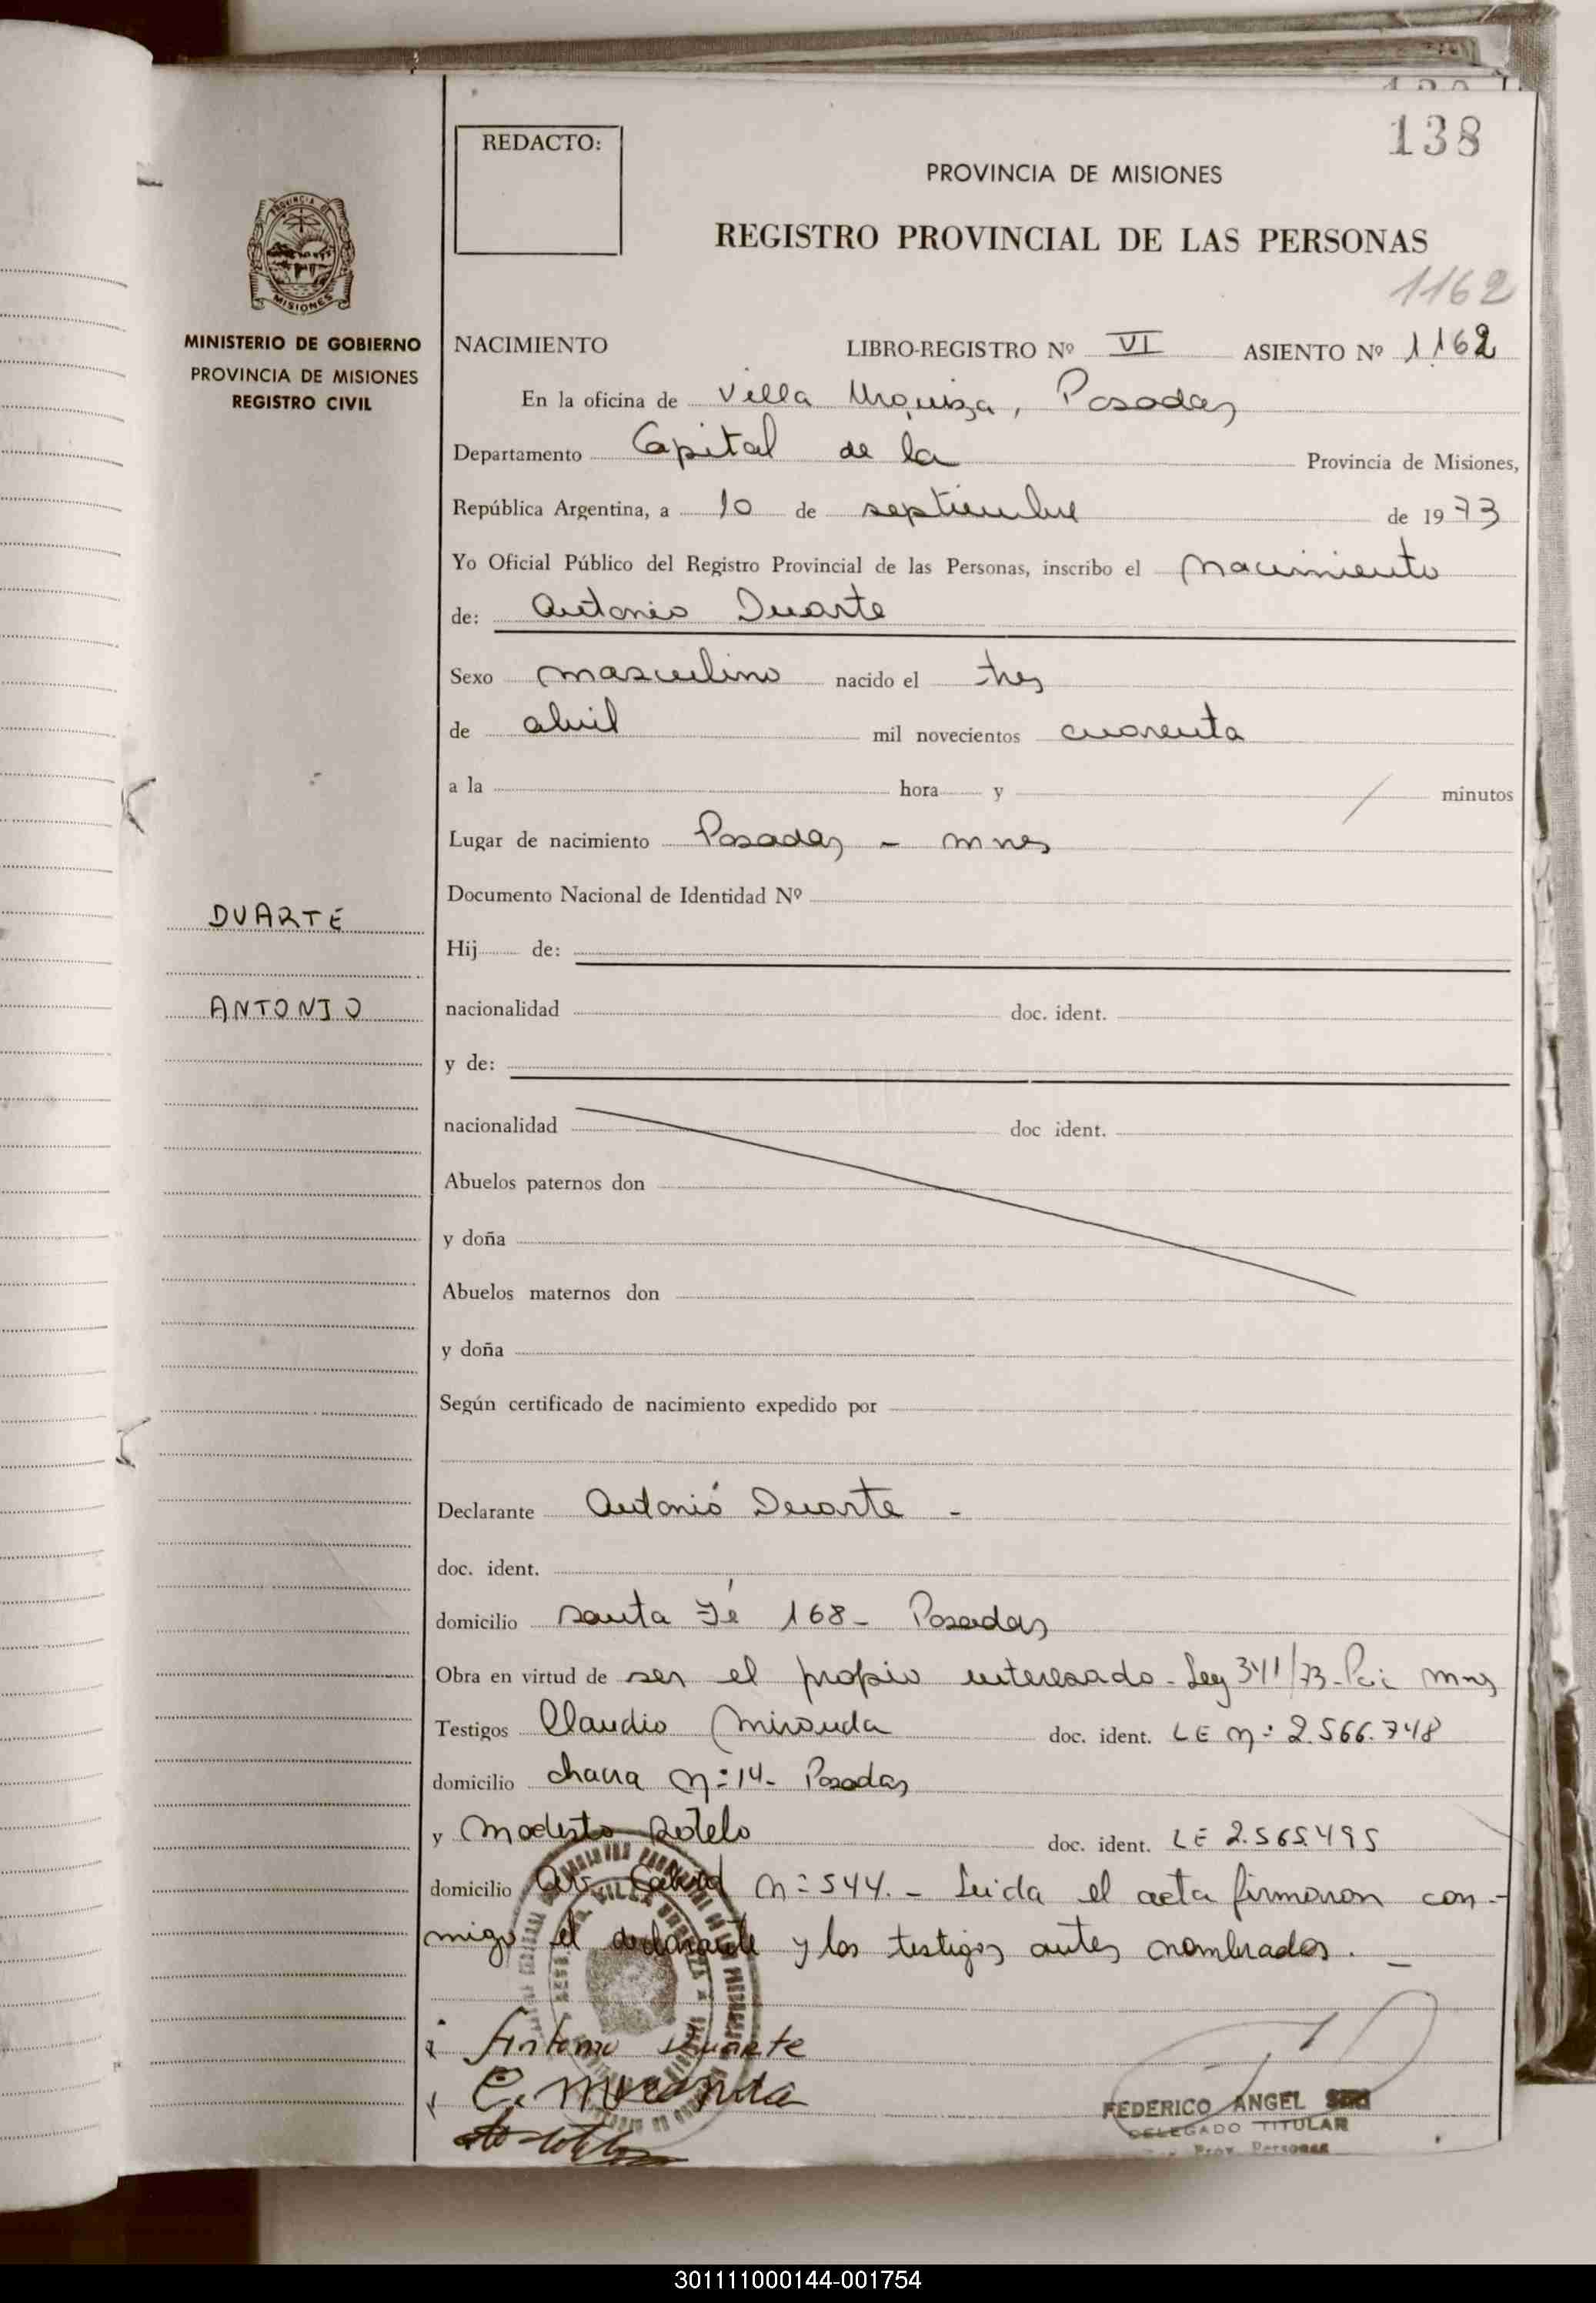 138
REDACTO:
PROVINCIA DE MISIONES
REGISTRO PROVINCIAL DE LAS PERSONAS
1162
MISIONES
MINISTERIO DE GOBIERNO
PROVINCIA DE MISIONES
REGISTRO CIVIL
NACIMIENTO LIBRO-REGISTRO Nº VI ASIENTO Nº 1162
En la oficina de Villa Urquiza, Posadas
Departamento Capital de la Provincia de Misiones,
República Argentina, a 10 de septiembre de 1973
Yo Oficial Público del Registro Provincial de las Personas, inscribo el nacimiento
de: Antonio Duarte
Sexo masculino nacido el tres
de abril mil novecientos cuarenta
a la hora y minutos
Lugar de nacimiento Posadas - mnes
Documento Nacional de Identidad Nº
DUARTE
Hij de:
ANTONIO
nacionalidad doc. ident.
y de:
nacionalidad doc ident.
Abuelos paternos don
y doña
Abuelos maternos don
y doña
Según certificado de nacimiento expedido por
Declarante Antonio Duarte -
doc. ident.
domicilio santa Fé 168- Posadas
Obra en virtud de ser el propio interesado - Ley 341/73 - mns
Testigos Claudio Miranda doc. ident. LE n: 2.566.748
domicilio chacra n: 14- Posadas
y Modesto Sotelo doc. ident. LE 2.565.495
domicilio Av. n: 544. - Leida el acta firmaron con-
migo el declarante y los testigos antes nombrados. -
Antonio Duarte
C. Miranda
FEDERICO ANGEL
DELEGADO TITULAR
Prov. Personas
301111000144-001754